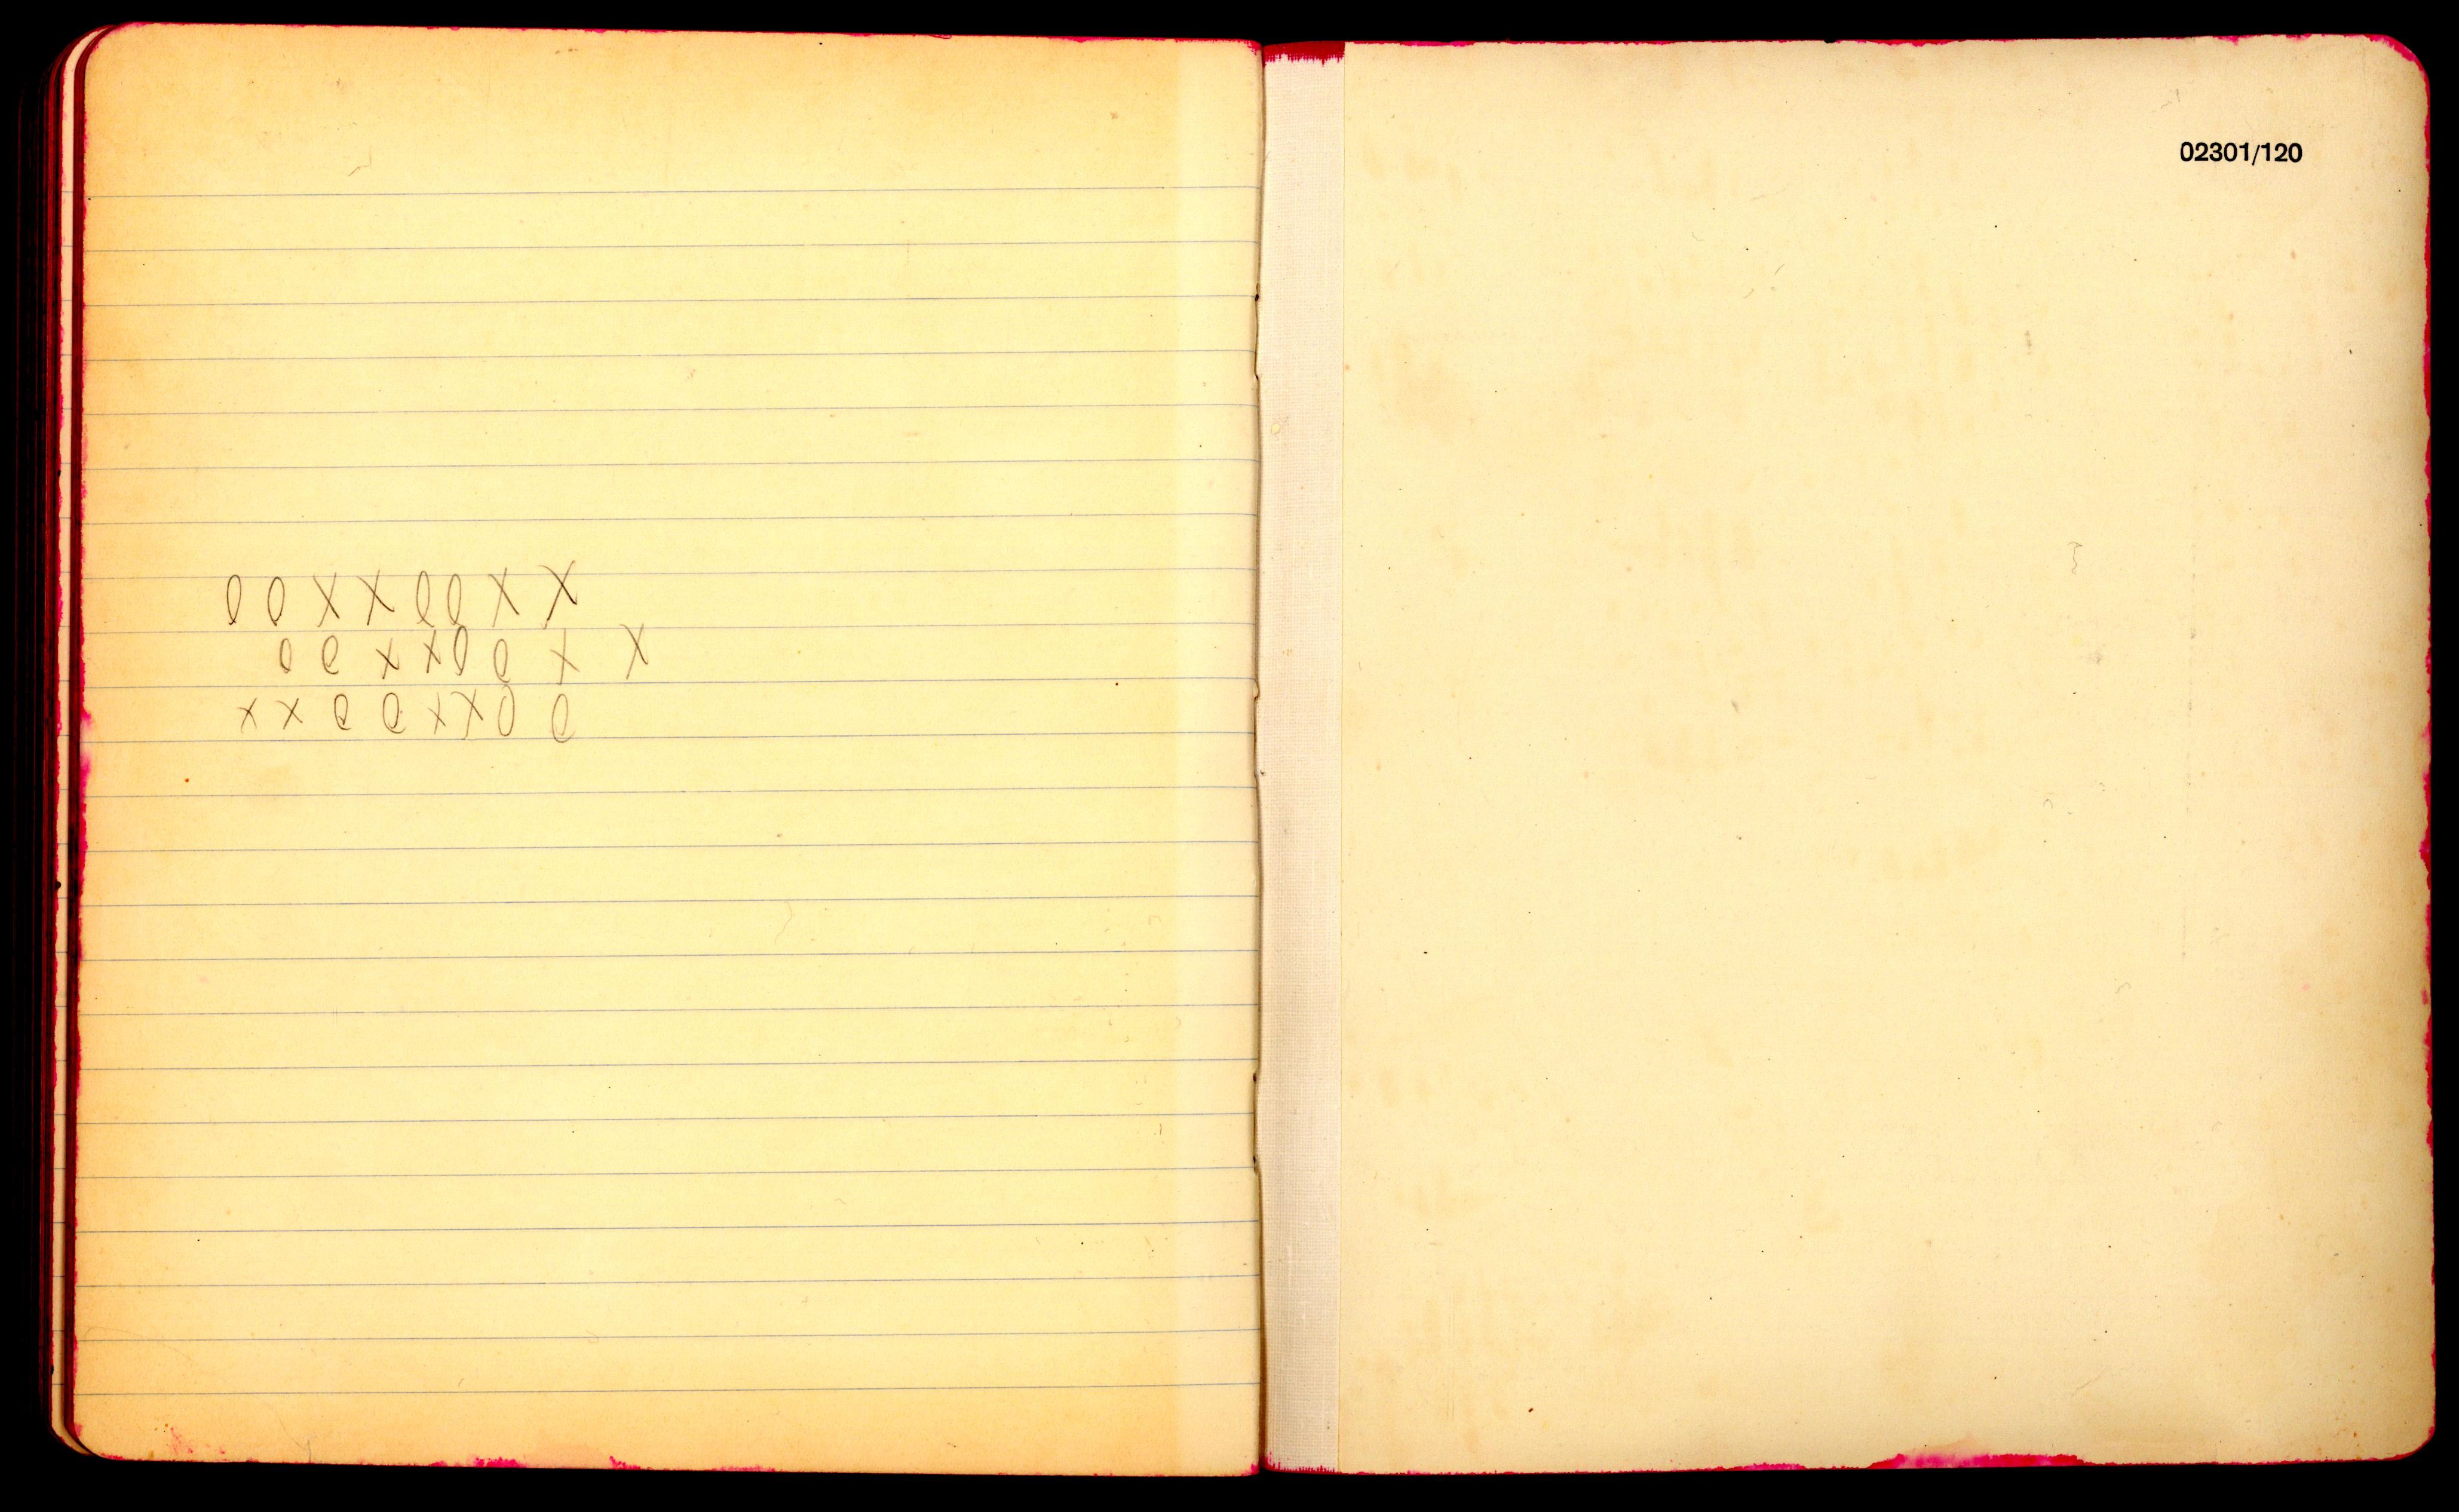 0 0 X X 0 0 X X
0 0 X X 0 0 X X
X X 0 0 X X 0 0
02301/120